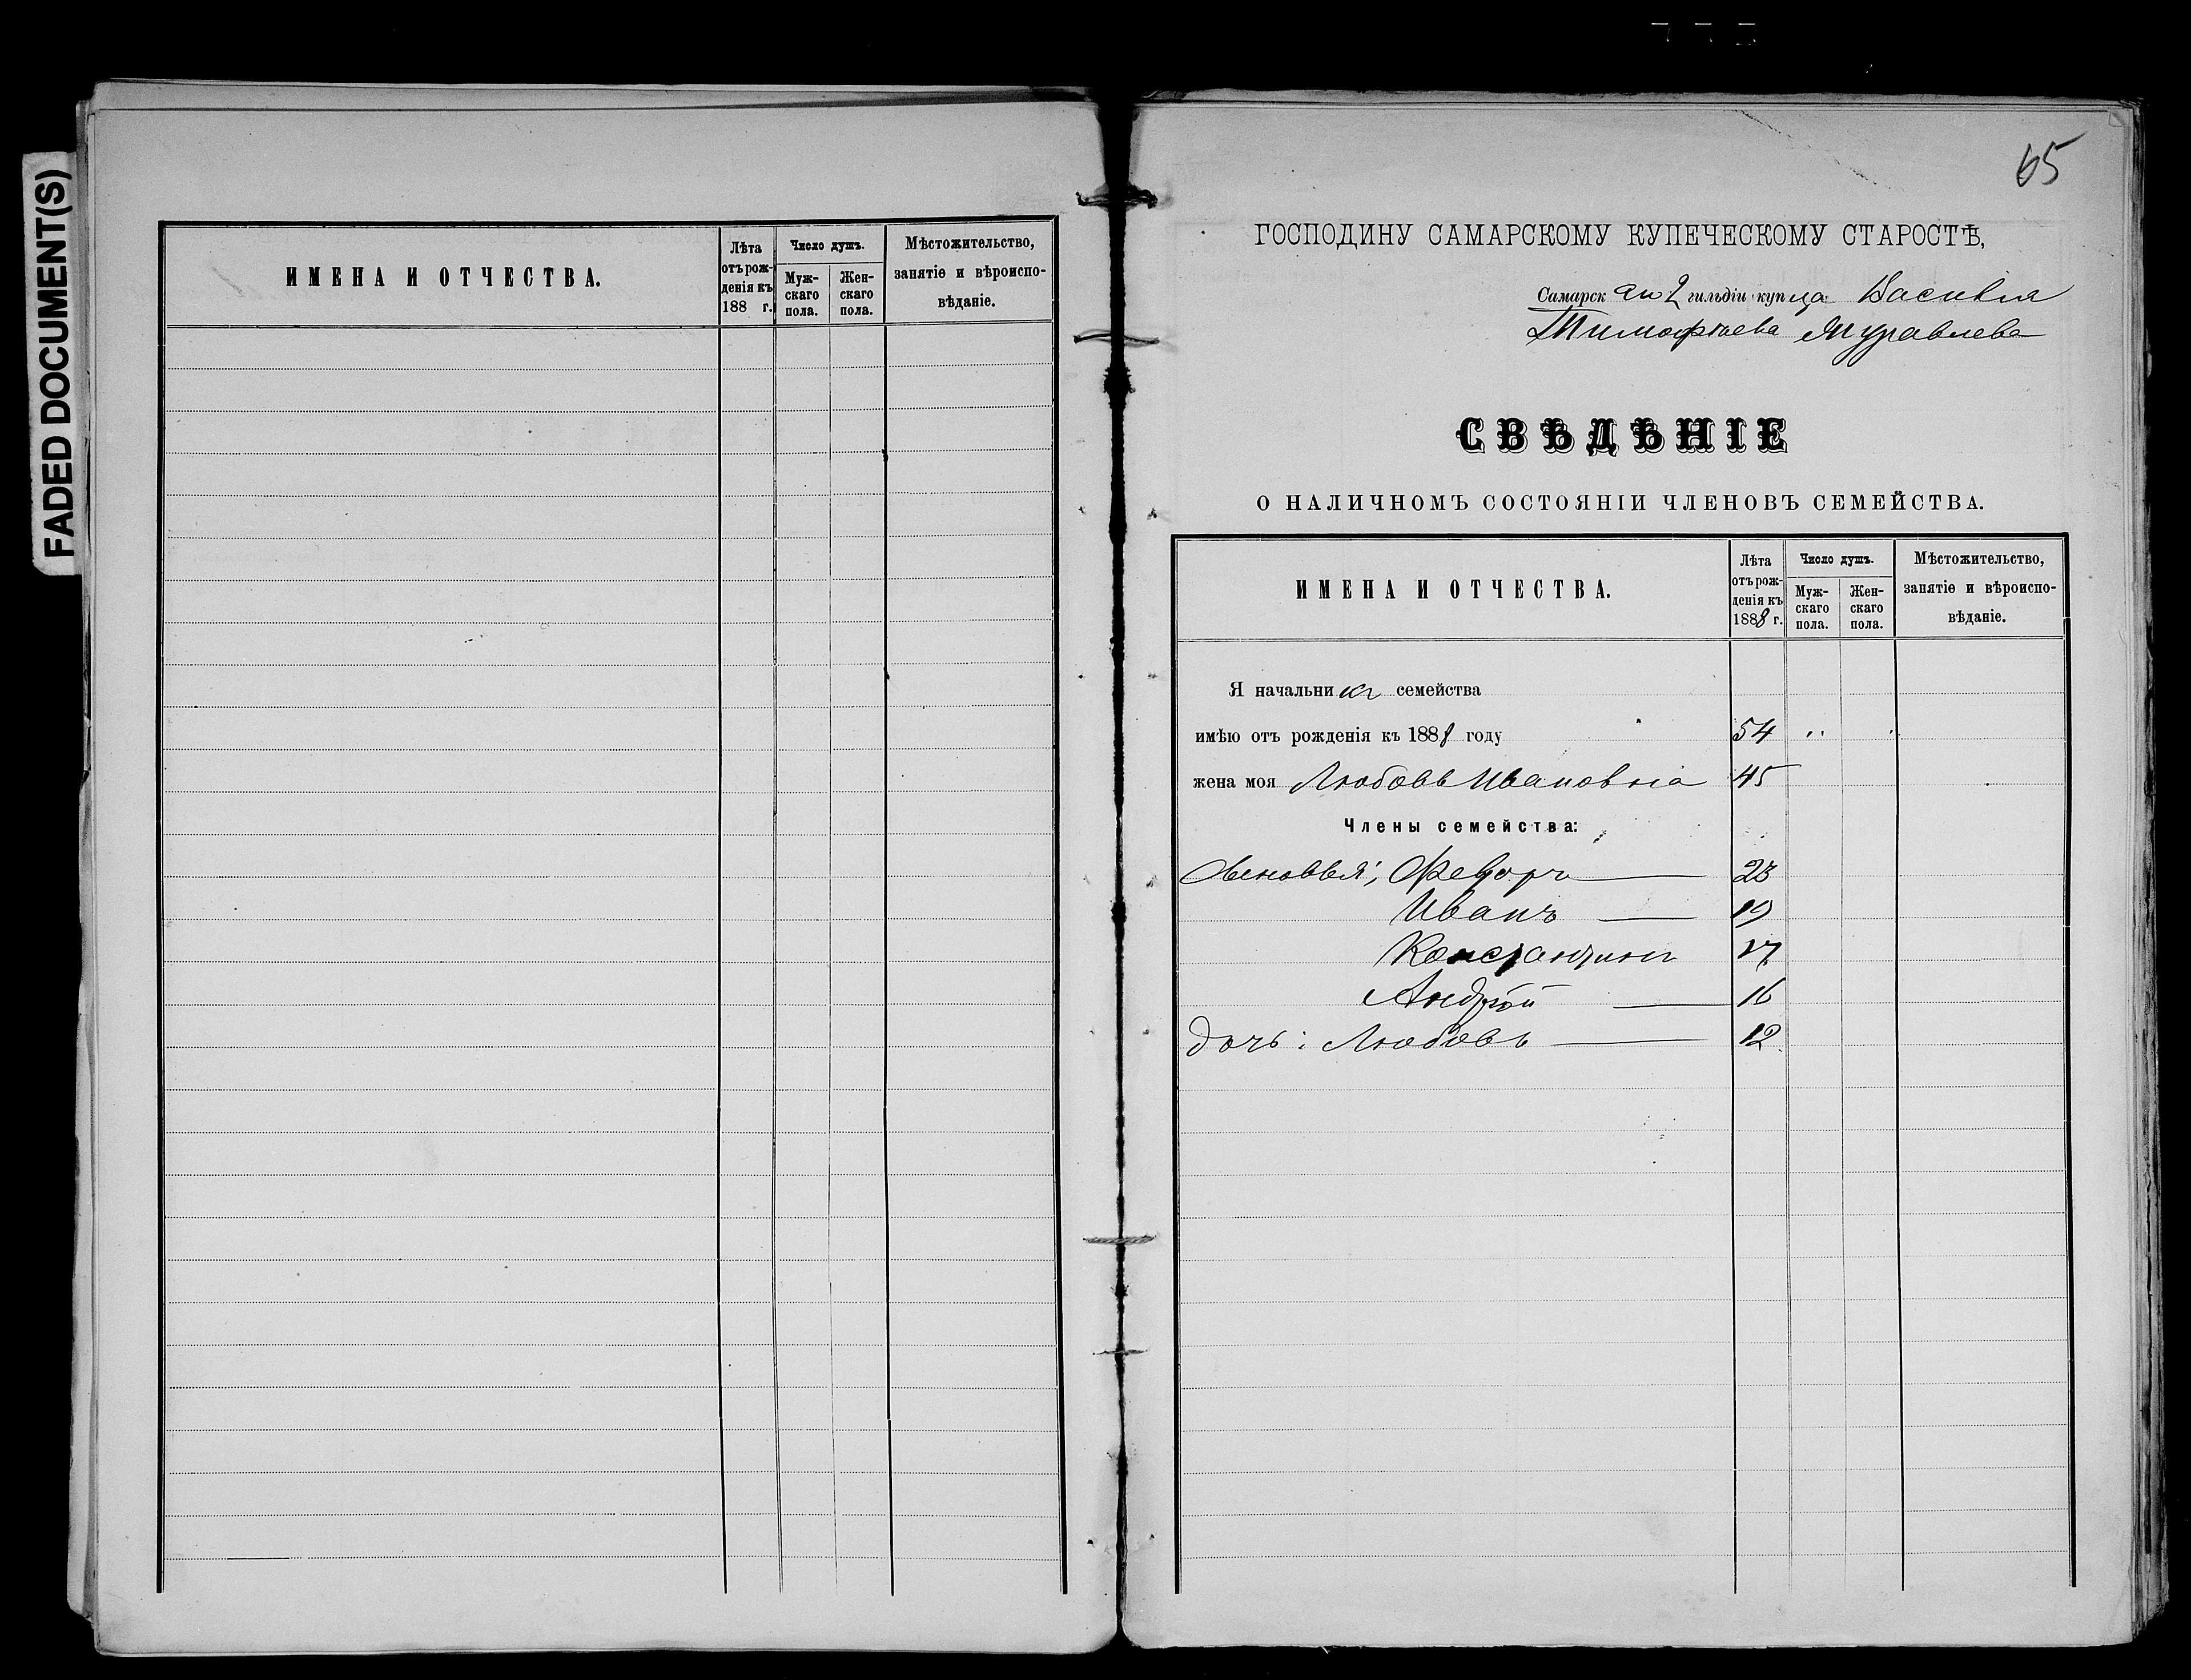 FADED DOCUMENT(S)
ИМЕНА И ОТЧЕСТВА.
Лѣта отъ рожденія къ 188 г.
Число душъ.
Мужскаго пола.
Женскаго пола.
Мѣстожительство, занятіе и вѣроисповѣданіе.
65
ГОСПОДИНУ САМАРСКОМУ КУПЕЧЕСКОМУ СТАРОСТѢ,
Самарскаго 2 гильдіи купца Василія
Тимофѣева Муравлева
СВѢДѢНІЕ
О НАЛИЧНОМЪ СОСТОЯНІИ ЧЛЕНОВЪ СЕМЕЙСТВА.
ИМЕНА И ОТЧЕСТВА.
Лѣта отъ рожденія къ 1888 г.
Число душъ.
Мужскаго пола.
Женскаго пола.
Мѣстожительство, занятіе и вѣроисповѣданіе.
Я начальникъ семейства
имѣю отъ рожденія къ 1888 году 54 "
жена моя Любовь Ивановна 45
Члены семейства:
Сыновья; Федоръ 23
Иванъ 19
Константинъ 17
Андрей 16
дочь: Любовь 12